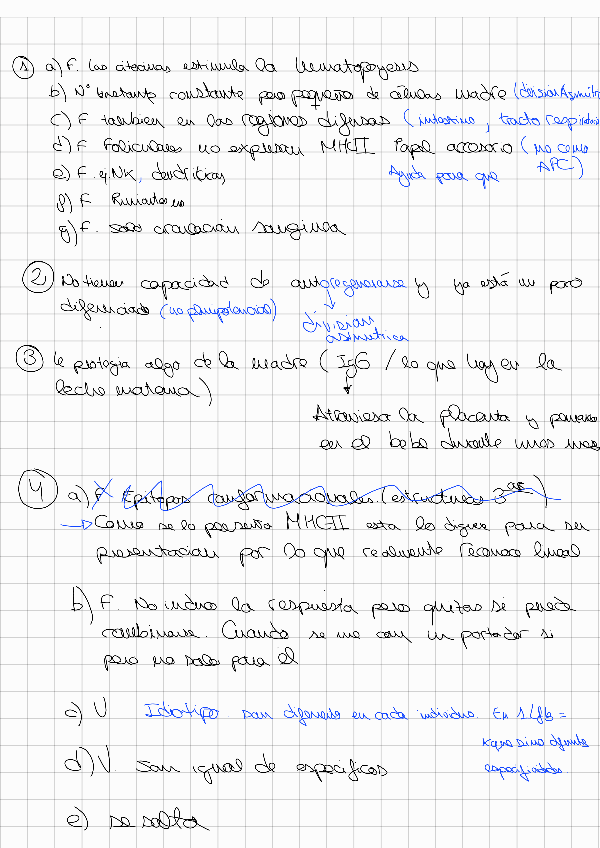 1 a) F. Las citocinas estimula la hematopoyesis
b) Nº bastante constante pero pequeño de células madre (división Asimétr
c) F tambien en las regiones difusas (intestino, tracto respiratorio
d) F Foliculares no expresan MHCII Papel accesorio (no como
e) F. ej. NK, dendríticas Ayuda para que APC)
f) F
g) F. solo circulación sanguinea
2 No tienen capacidad de autoregenerarse y ya está un poco
diferenciado (no pluripotencial)
división
asimetrica
3 le protegia algo de la madre (IgG / lo que hay en la
leche materna)
Atraviesa la placenta y
en el bebe durante unos mes
4 a) F Epitopos conformacionales (estructuras 3as)
Como se lo presenta MHCII esta lo digiere para su
presentacion por lo que realmente reconoce lineal
b) F. No induce la respuesta pero quizas si puede
combinarse. Cuando se une con un portador si
pero no solo para el
c) V Idiotipo son diferentes en cada individuo. En =
especificidades
d) V. Son igual de especificos
e) se salta